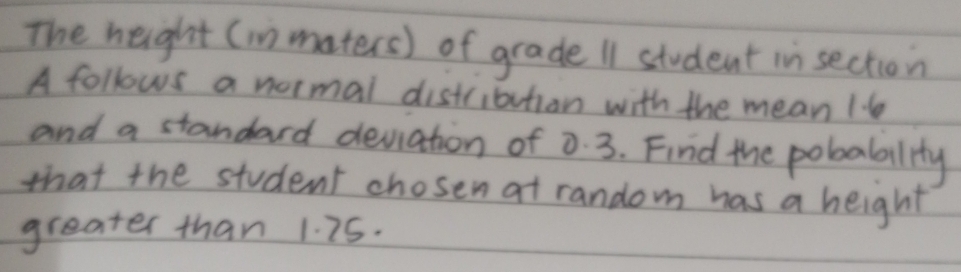 The height (in maters) of grade 11 student in section
A follows a normal distribution with the mean 1.6
and a standard deviation of 0.3. Find the pobability
that the student chosen at random has a height
greater than 1.75.